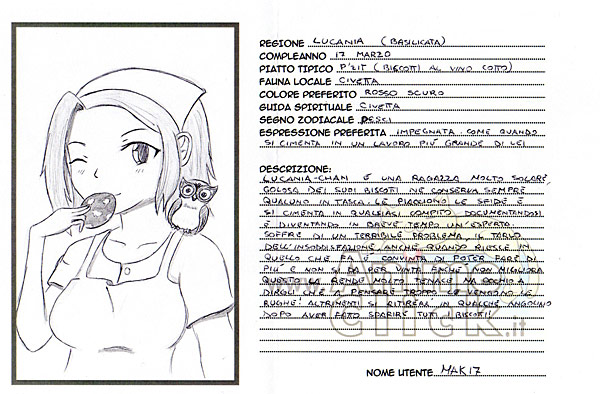 REGIONE LUCANIA (BASILICATA)
COMPLEANNO 17 MARZO
PIATTO TIPICO P'ZIT (BISCOTTI AL VINO COTTO)
FAUNA LOCALE CIVETTA
COLORE PREFERITO ROSSO SCURO
GUIDA SPIRITUALE CIVETTA
SEGNO ZODIACALE PESCI
ESPRESSIONE PREFERITA IMPEGNATA COME QUANDO
SI CIMENTA IN UN LAVORO PIÙ GRANDE DI LEI
DESCRIZIONE:
LUCANIA-CHAN È UNA RAGAZZA MOLTO SOLARE,
GOLOSA DEI SUOI BISCOTTI NE CONSERVA SEMPRE
QUALUNO IN TASCA. LE PIACCIONO LE SFIDE E
SI CIMENTA IN QUALSIASI COMPITO DOCUMENTANDOSI
E DIVENTANDO IN BREVE TEMPO UN'ESPERTA.
SOFFRE DI UN TERRIBILE PROBLEMA, IL TARLO
DELL'INSODDISFAZIONE, ANCHE QUANDO RIESCE IN
QUELLO CHE FA È CONVINTA DI POTER FARE DI
PIÙ E NON SI DA PER VINTA FINCHÈ NON MIGLIORA
QUESTO LA RENDE MOLTO TENACE MA OCCHIO A
DIRGLI CHE A PENSARE TROPPO LE VENGONO LE
RUGHE! ALTRIMENTI SI RITIRERA' IN QUALCHE ANGOLINO
DOPO AVER FATTO SPARIRE TUTTI I BISCOTTI!
www.AnimeClick.it
NOME UTENTE MAK17